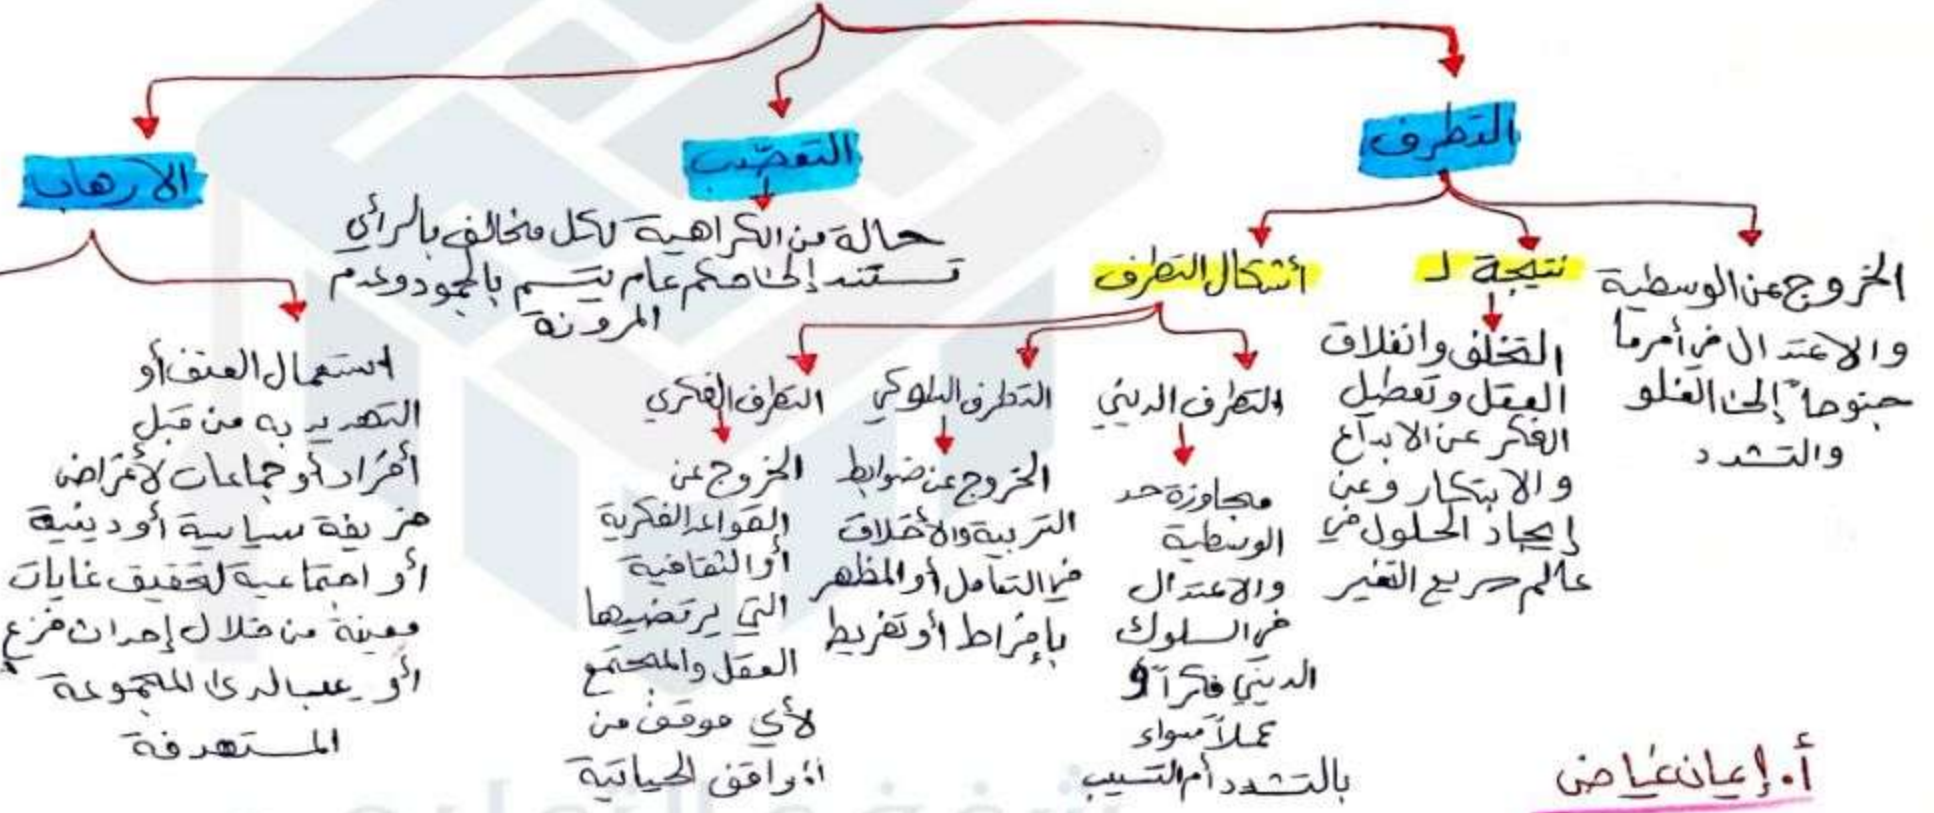 التطرف
الخروج عن الوسطية
والاعتدال في أمر ما
جنوحاً إلى الغلو
والتشدد
نتيجة لـ
التخلف وانغلاق
العقل وتعطيل
الفكر عن الابداع
والابتكار وعن
إيجاد الحلول في
عالم سريع التغير
أشكال التطرف
التطرف الديني
مجاوزة حد
الوسطية
والاعتدال
في السلوك
الديني فكراً و
عملاً سواء
بالتشدد أم التسيب
التطرف السلوكي
الخروج عن ضوابط
التربية والأخلاق
في التعامل أو المظهر
بإفراط أو تفريط
التطرف الفكري
الخروج عن
القواعد الفكرية
أو الثقافية
التي يرتضيها
العقل والمجتمع
لأي موقف من
المواقف الحياتية
التعصّب
حالة من الكراهية لكل مخالف بالرأي
تستند إلى حكم عام يتسم بالجمود وعدم
المرونة
الارهاب
استعمال العنف أو
التهديد به من قبل
أفراد أو جماعات لأغراض
سياسية أو دينية
أو اجتماعية لتحقيق غايات
معينة من خلال إحداث فزع
أو لدى المجموعة
المستهدفة
أ. إيمان غياض